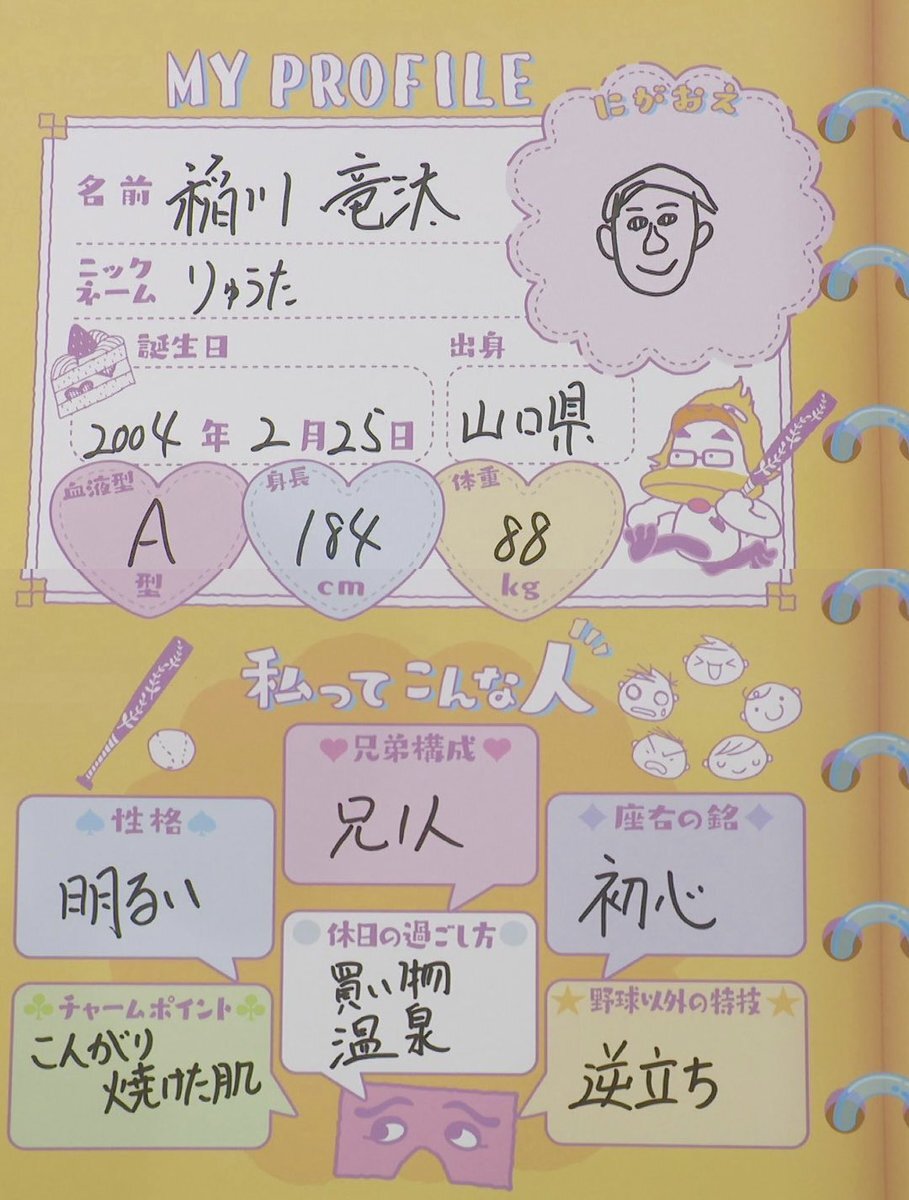 MY PROFILE
にがおえ
名前 稲川 竜汰
ニックネーム りゅうた
誕生日
2004年2月25日
出身
山口県
血液型
A
型
身長
184
cm
体重
88
kg
私ってこんな人
兄弟構成
兄1人
性格
明るい
座右の銘
初心
休日の過ごし方
買い物
温泉
チャームポイント
こんがり
焼けた肌
野球以外の特技
逆立ち